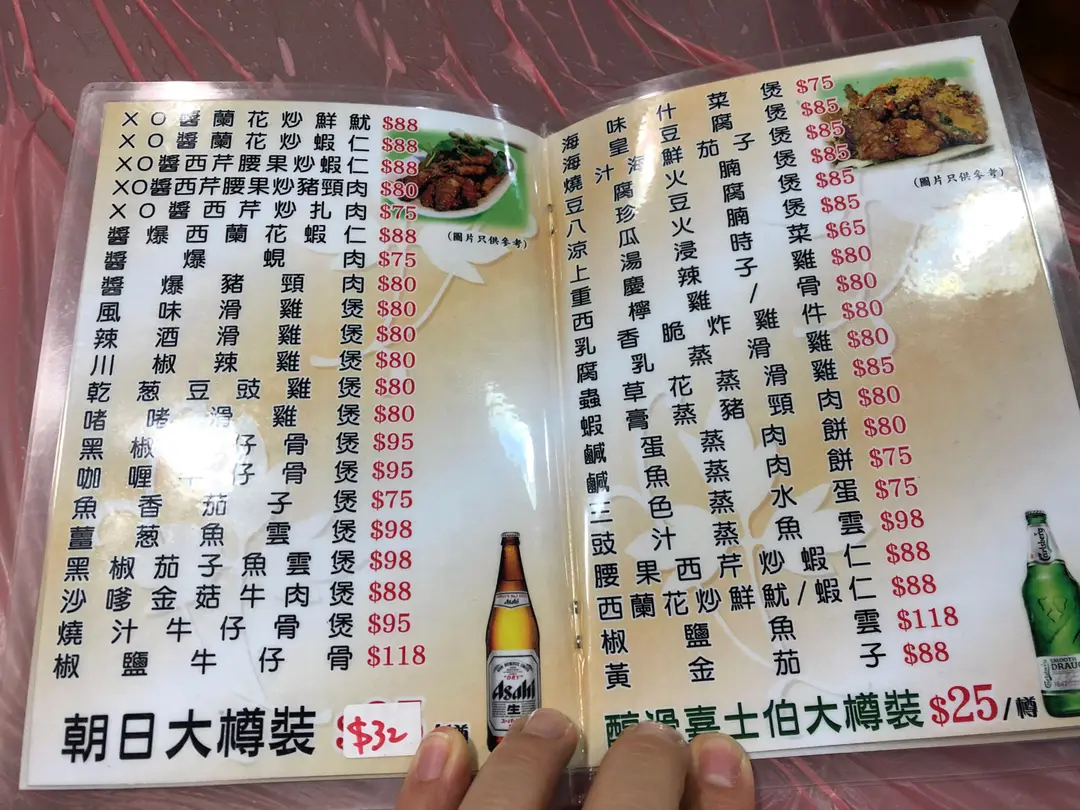 XO醬蘭花炒鮮魷 $88
XO醬蘭花炒蝦仁 $88
XO醬西芹腰果炒蝦仁 $88
XO醬西芹腰果炒豬頸肉 $80
XO醬西芹炒扎肉 $75
醬爆西蘭花蝦仁 $88
醬爆蜆肉 $75
醬爆豬頸肉 $80
風味滑雞煲 $80
辣酒滑雞煲 $80
川椒辣雞煲 $80
乾葱豆豉雞煲 $80
啫啫滑雞煲 $80
黑椒牛仔骨煲 $95
咖喱牛仔骨煲 $95
魚香茄子煲 $75
薑葱魚雲煲 $98
黑椒茄子魚雲煲 $98
沙嗲金菇牛肉煲 $88
燒汁牛仔骨煲 $95
椒鹽牛仔骨 $118
(圖片只供參考)
朝日大樽裝 $32 /樽
Asahi
生
海味什菜煲 $75
海皇豆腐煲 $85
燒汁海鮮茄子煲 $85
豆腐火腩煲 $85
八珍豆腐煲 $85
涼瓜火腩煲 $85
上湯浸時菜 $65
重慶辣子雞 $80
西檸雞/骨 $80
乳香脆炸雞件 $80
腐乳蒸雞 $80
蟲草花蒸滑雞 $85
蝦膏蒸豬頸肉 $80
鹹蛋蒸肉餅 $80
鹹魚蒸肉餅 $75
三色蒸水蛋 $75
豉汁蒸魚雲 $98
腰果西芹炒蝦仁 $88
西蘭花炒鮮魷/蝦仁 $88
椒鹽魚雲 $118
黃金茄子 $88
(圖片只供參考)
醇滑嘉士伯大樽裝 $25/樽
Carlsberg
SMOOTH
DRAUG